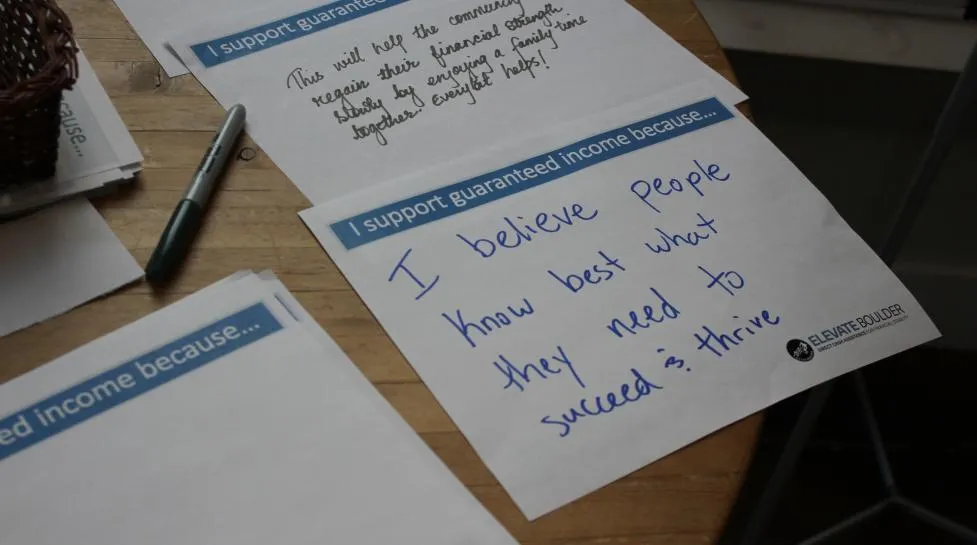 I support guaranteed
This will help the community
regain their financial strength
slowly by enjoying a family time
together. Every bit helps!
cause...
I support guaranteed income because...
I believe people
know best what
they need to
succeed & thrive
ELEVATE BOULDER
DIRECT CASH ASSISTANCE FOR FINANCIAL STABILITY
ed income because...